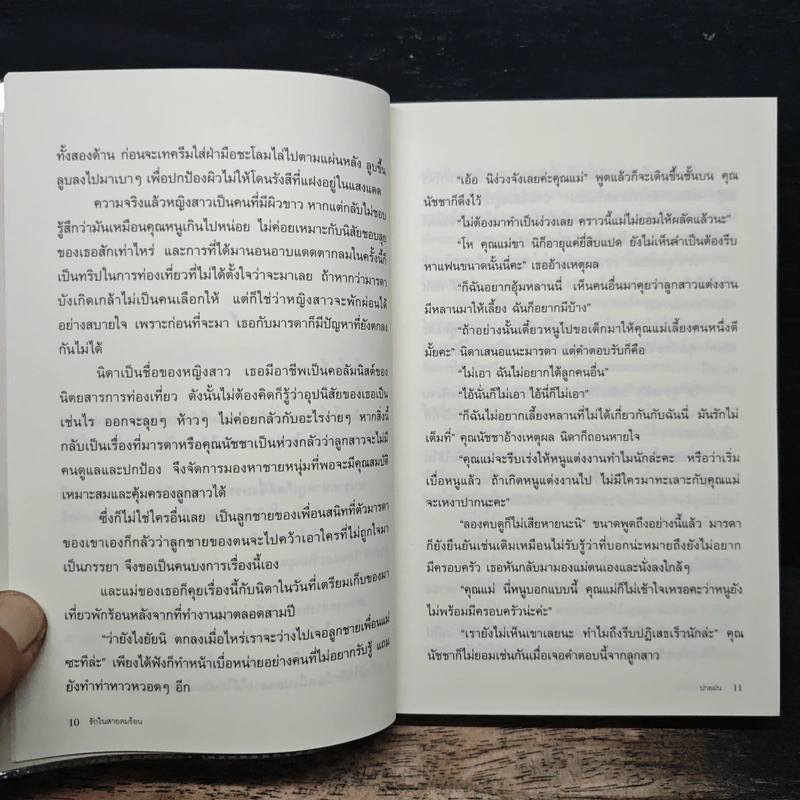 ทั้งสองด้าน ก่อนจะเทครีมใส่ฝ่ามือชะโลมไล่ไปตามแผ่นหลัง ลูบขึ้น
ลูบลงไปมาเบาๆ เพื่อปกป้องผิวไม่ให้โดนรังสีที่แฝงอยู่ในแสงแดด
ความจริงแล้วหญิงสาวเป็นคนที่มีผิวขาว หากแต่กลับไม่ชอบ
รู้สึกว่ามันเหมือนคุณหนูเกินไปหน่อย ไม่ค่อยเหมาะกับนิสัยชอบลุย
ของเธอสักเท่าไหร่ และการที่ได้มานอนอาบแดดตากลมในครั้งนี้ก็
เป็นทริปในการท่องเที่ยวที่ไม่ได้ตั้งใจว่าจะมาเลย ถ้าหากว่ามารดา
บังเกิดเกล้าไม่เป็นคนเลือกให้ แต่ก็ใช่ว่าหญิงสาวจะพักผ่อนได้
อย่างสบายใจ เพราะก่อนที่จะมา เธอกับมารดาก็มีปัญหาที่ยังตกลง
กันไม่ได้
นิดาเป็นชื่อของหญิงสาว เธอมีอาชีพเป็นคอลัมนิสต์ของ
นิตยสารการท่องเที่ยว ดังนั้นไม่ต้องคิดก็รู้ว่าอุปนิสัยของเธอเป็น
เช่นไร ออกจะลุยๆ ห้าวๆ ไม่ค่อยกลัวกับอะไรง่ายๆ หากสิ่งนี้
กลับเป็นเรื่องที่มารดาหรือคุณนัชชาเป็นห่วงกลัวว่าลูกสาวจะไม่มี
คนดูแลและปกป้อง จึงจัดการมองหาชายหนุ่มที่พอจะมีคุณสมบัติ
เหมาะสมและคุ้มครองลูกสาวได้
ซึ่งก็ไม่ใช่ใครอื่นเลย เป็นลูกชายของเพื่อนสนิทที่ตัวมารดา
ของเขาเองก็กลัวว่าลูกชายของตนจะไปคว้าเอาใครที่ไม่ถูกใจมา
เป็นภรรยา จึงขอเป็นคนบงการเรื่องนี้เอง
และแม่ของเธอก็คุยเรื่องนี้กับนิดาในวันที่เตรียมเก็บของมา
เที่ยวพักร้อนหลังจากที่ทำงานมาตลอดสามปี
“ว่ายังไงยัยนิ ตกลงเมื่อไหร่เราจะว่างไปเจอลูกชายเพื่อนแม่
ซะทีล่ะ” เพียงได้ฟังก็ทำหน้าเบื่อหน่ายอย่างคนที่ไม่อยากรับรู้ แถม
ยังทำท่าหาวหวอดๆ อีก
10 รักในสายลมร้อน
“เอ้อ นิง่วงจังเลยค่ะคุณแม่” พูดแล้วก็จะเดินขึ้นชั้นบน คุณ
นัชชาก็ดึงไว้
“ไม่ต้องมาทำเป็นง่วงเลย คราวนี้แม่ไม่ยอมให้ผลัดแล้วนะ”
“โห คุณแม่ขา นิก็อายุแค่ยี่สิบแปด ยังไม่เห็นจำเป็นต้องรีบ
หาแฟนขนาดนั้นนี่คะ” เธออ้างเหตุผล
“ก็ฉันอยากอุ้มหลานนี่ เห็นคนอื่นมาคุยว่าลูกสาวแต่งงาน
มีหลานมาให้เลี้ยง ฉันก็อยากมีบ้าง”
“ถ้าอย่างนั้นเดี๋ยวหนูไปขอเด็กมาให้คุณแม่เลี้ยงคนหนึ่งดี
มั้ยคะ” นิดาเสนอแนะมารดา แต่คำตอบรับก็คือ
“ไม่เอา ฉันไม่อยากได้ลูกคนอื่น”
“ไอ้นั่นก็ไม่เอา ไอ้นี่ก็ไม่เอา”
“ก็ฉันไม่อยากเลี้ยงหลานที่ไม่ได้เกี่ยวกันกับฉันนี่ มันรักไม่
เต็มที่” คุณนัชชาอ้างเหตุผล นิดาก็ถอนหายใจ
“คุณแม่จะรีบเร่งให้หนูแต่งงานทำไมนักล่ะคะ หรือว่าเริ่ม
เบื่อหนูแล้ว ถ้าเกิดหนูแต่งงานไป ไม่มีใครมาทะเลาะกับคุณแม่
จะเหงาปากนะคะ”
“ลองคบดูก็ไม่เสียหายนะนิ” ขนาดพูดถึงอย่างนี้แล้ว มารดา
ก็ยังยืนยันเช่นเดิมเหมือนไม่รับรู้ว่าที่บอกน่ะหมายถึงยังไม่อยาก
มีครอบครัว เธอหันกลับมามองแม่ตนเองและนั่งลงใกล้ๆ
“คุณแม่ นี่หนูบอกแบบนี้ คุณแม่ก็ไม่เข้าใจเหรอคะว่าหนูยัง
ไม่พร้อมมีครอบครัวน่ะค่ะ”
“เรายังไม่เห็นเขาเลยนะ ทำไมถึงรีบปฏิเสธเร็วนักล่ะ” คุณ
นัชชาก็ไม่ยอมเช่นกันเมื่อเจอคำตอบนี้จากลูกสาว
ปายฝน 11